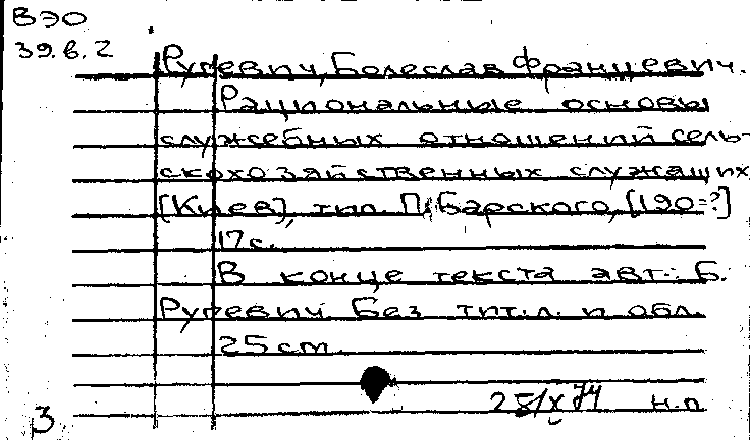 ВЭО
39.6.2
Руцевич, Болеслав Францевич.
Рациональные основы
служебных отношений сель-
скохозяйственных служащих
[Киев], тип. П. Барского, [190-?]
17 с.
В конце текста авт.: Б.
Руцевич. Без тит.л. и обл.
25 cm.
28/X 74 н.п
3